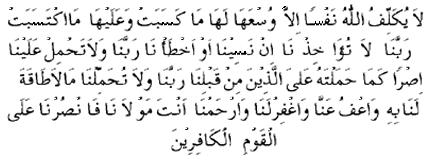 لَا يُكَلِّفُ اللّٰهُ نَفْسًا اِلَّا وُسْعَهَا لَهَا مَا كَسَبَتْ وَعَلَيْهَا مَا اكْتَسَبَتْ
رَبَّنَا لَا تُؤَاخِذْ نَا اِنْ نَسِيْنَا اَوْ اَخْطَأْ نَا رَبَّنَا وَلَا تَحْمِلْ عَلَيْنَا
اِصْرًا كَمَا حَمَلْتَهُ عَلَى الَّذِيْنَ مِنْ قَبْلِنَا رَبَّنَا وَلَا تُحَمِّلْنَا مَالَاطَاقَةَ
لَنَا بِهِ وَاعْفُ عَنَّا وَاغْفِرْلَنَا وَارْحَمْنَا اَنْتَ مَوْ لَا نَا فَا نْصُرْنَا عَلَى
الْقَوْمِ الْكَافِرِيْنَ